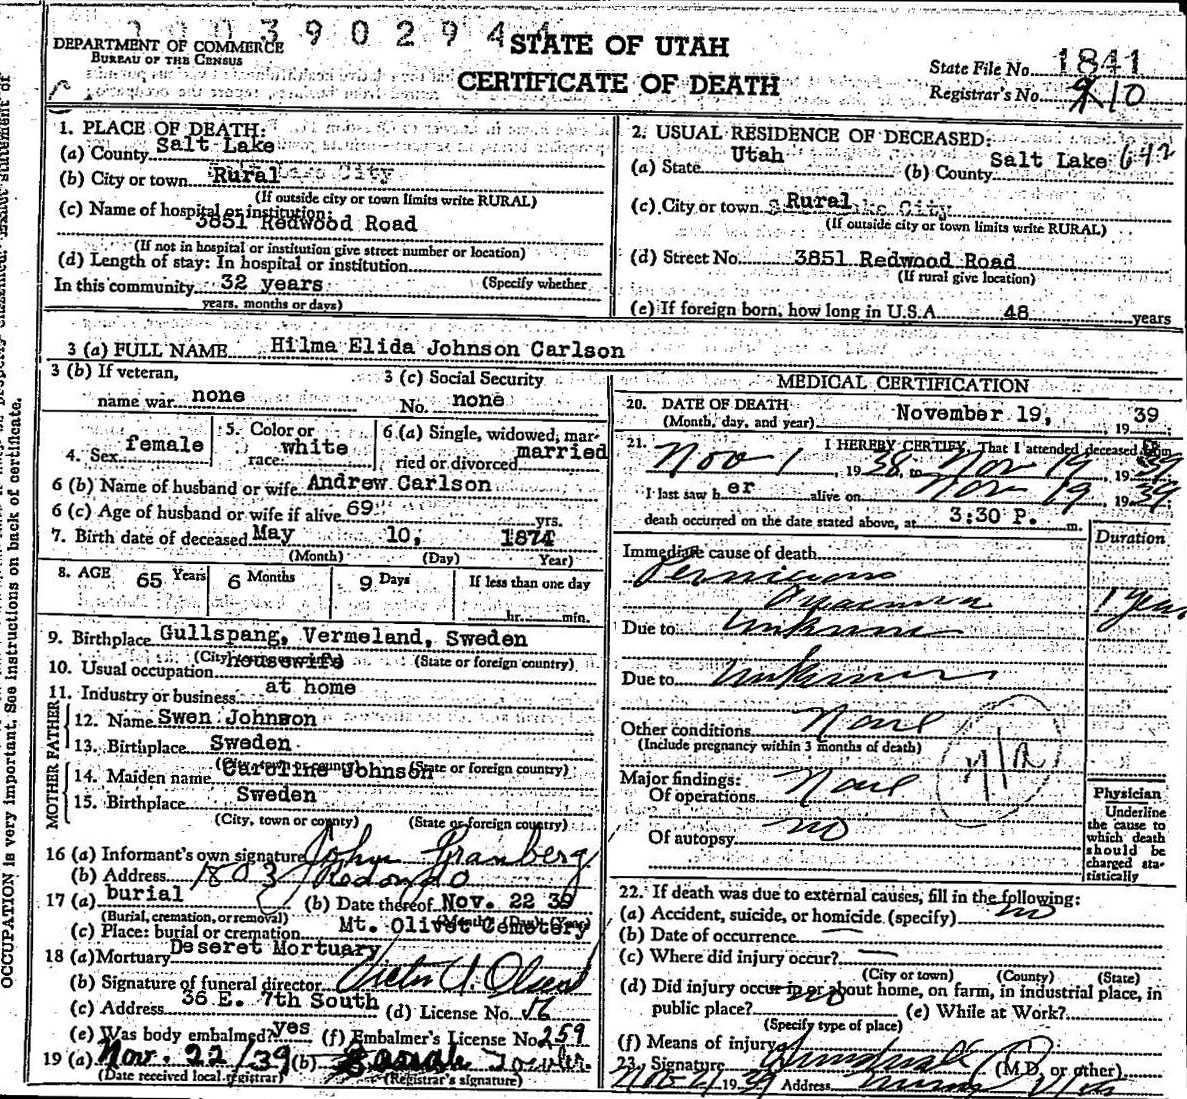 2 0 0 3 9 0 2 9 4 4
DEPARTMENT OF COMMERCE
BUREAU OF THE CENSUS
STATE OF UTAH
CERTIFICATE OF DEATH
State File No. 1841
Registrar's No. 10
1. PLACE OF DEATH:
(a) County Salt Lake
(b) City or town Rural
(If outside city or town limits write RURAL)
(c) Name of hospital or institution:
3851 Redwood Road
(If not in hospital or institution give street number or location)
(d) Length of stay: In hospital or institution
In this community 32 years (Specify whether
years, months or days)
2. USUAL RESIDENCE OF DECEASED:
(a) State Utah (b) County Salt Lake 642
(c) City or town Rural
(If outside city or town limits write RURAL)
(d) Street No. 3851 Redwood Road
(If rural give location)
(e) If foreign born, how long in U.S.A. 48 years
3 (a) FULL NAME Hilma Elida Johnson Carlson
3 (b) If veteran,
name war none
3 (c) Social Security
No. none
4. Sex female
5. Color or
race white
6 (a) Single, widowed, mar-
ried or divorced married
6 (b) Name of husband or wife Andrew Carlson
6 (c) Age of husband or wife if alive 69 yrs.
7. Birth date of deceased May 10, 1874
(Month) (Day) Year)
8. AGE 65 Years 6 Months 9 Days If less than one day
hr. min.
9. Birthplace Gullspang, Vermeland, Sweden
(City (State or foreign country)
10. Usual occupation housewife
11. Industry or business at home
FATHER
12. Name Swen Johnson
13. Birthplace Sweden
(City, town or county) (State or foreign country)
MOTHER
14. Maiden name Caroline Johnson
15. Birthplace Sweden
(City, town or county) (State or foreign country)
16 (a) Informant's own signature John Granberg
(b) Address 1803 Redondo
17 (a) burial (b) Date thereof Nov. 22 39
(Burial, cremation, or removal) (Month) (Day) (Year)
(c) Place: burial or cremation Mt. Olivet Cemetery
18 (a) Mortuary Deseret Mortuary
(b) Signature of funeral director Victor V. Olsen
(c) Address 36 E. 7th South (d) License No. 56
(e) Was body embalmed? yes (f) Embalmer's License No. 259
19 (a) Nov. 22/39 (b)
(Date received local registrar) (Registrar's signature)
MEDICAL CERTIFICATION
20. DATE OF DEATH
(Month, day, and year) November 19, 1939
21. I HEREBY CERTIFY, That I attended deceased from
Nov 1, 1938, to Nov 19, 1939
I last saw her alive on Nov 19 1939
death occurred on the date stated above, at 3:30 P. m.
Duration
Immediate cause of death
Pernicious
Anaemia 1 Year
Due to Unknown
Due to Unknown
Other conditions None
(Include pregnancy within 3 months of death)
Major findings:
Of operations None
Of autopsy no
n/a
Physician
Underline
the cause to
which death
should be
charged sta-
tistically
22. If death was due to external causes, fill in the following:
(a) Accident, suicide, or homicide (specify) no
(b) Date of occurrence
(c) Where did injury occur?
(City or town) (County) (State)
(d) Did injury occur in or about home, on farm, in industrial place, in
public place? no (e) While at Work?
(Specify type of place)
(f) Means of injury
23. Signature (M.D. or other)
1939 Address Murray Utah
OCCUPATION is very important. See instructions on back of certificate.